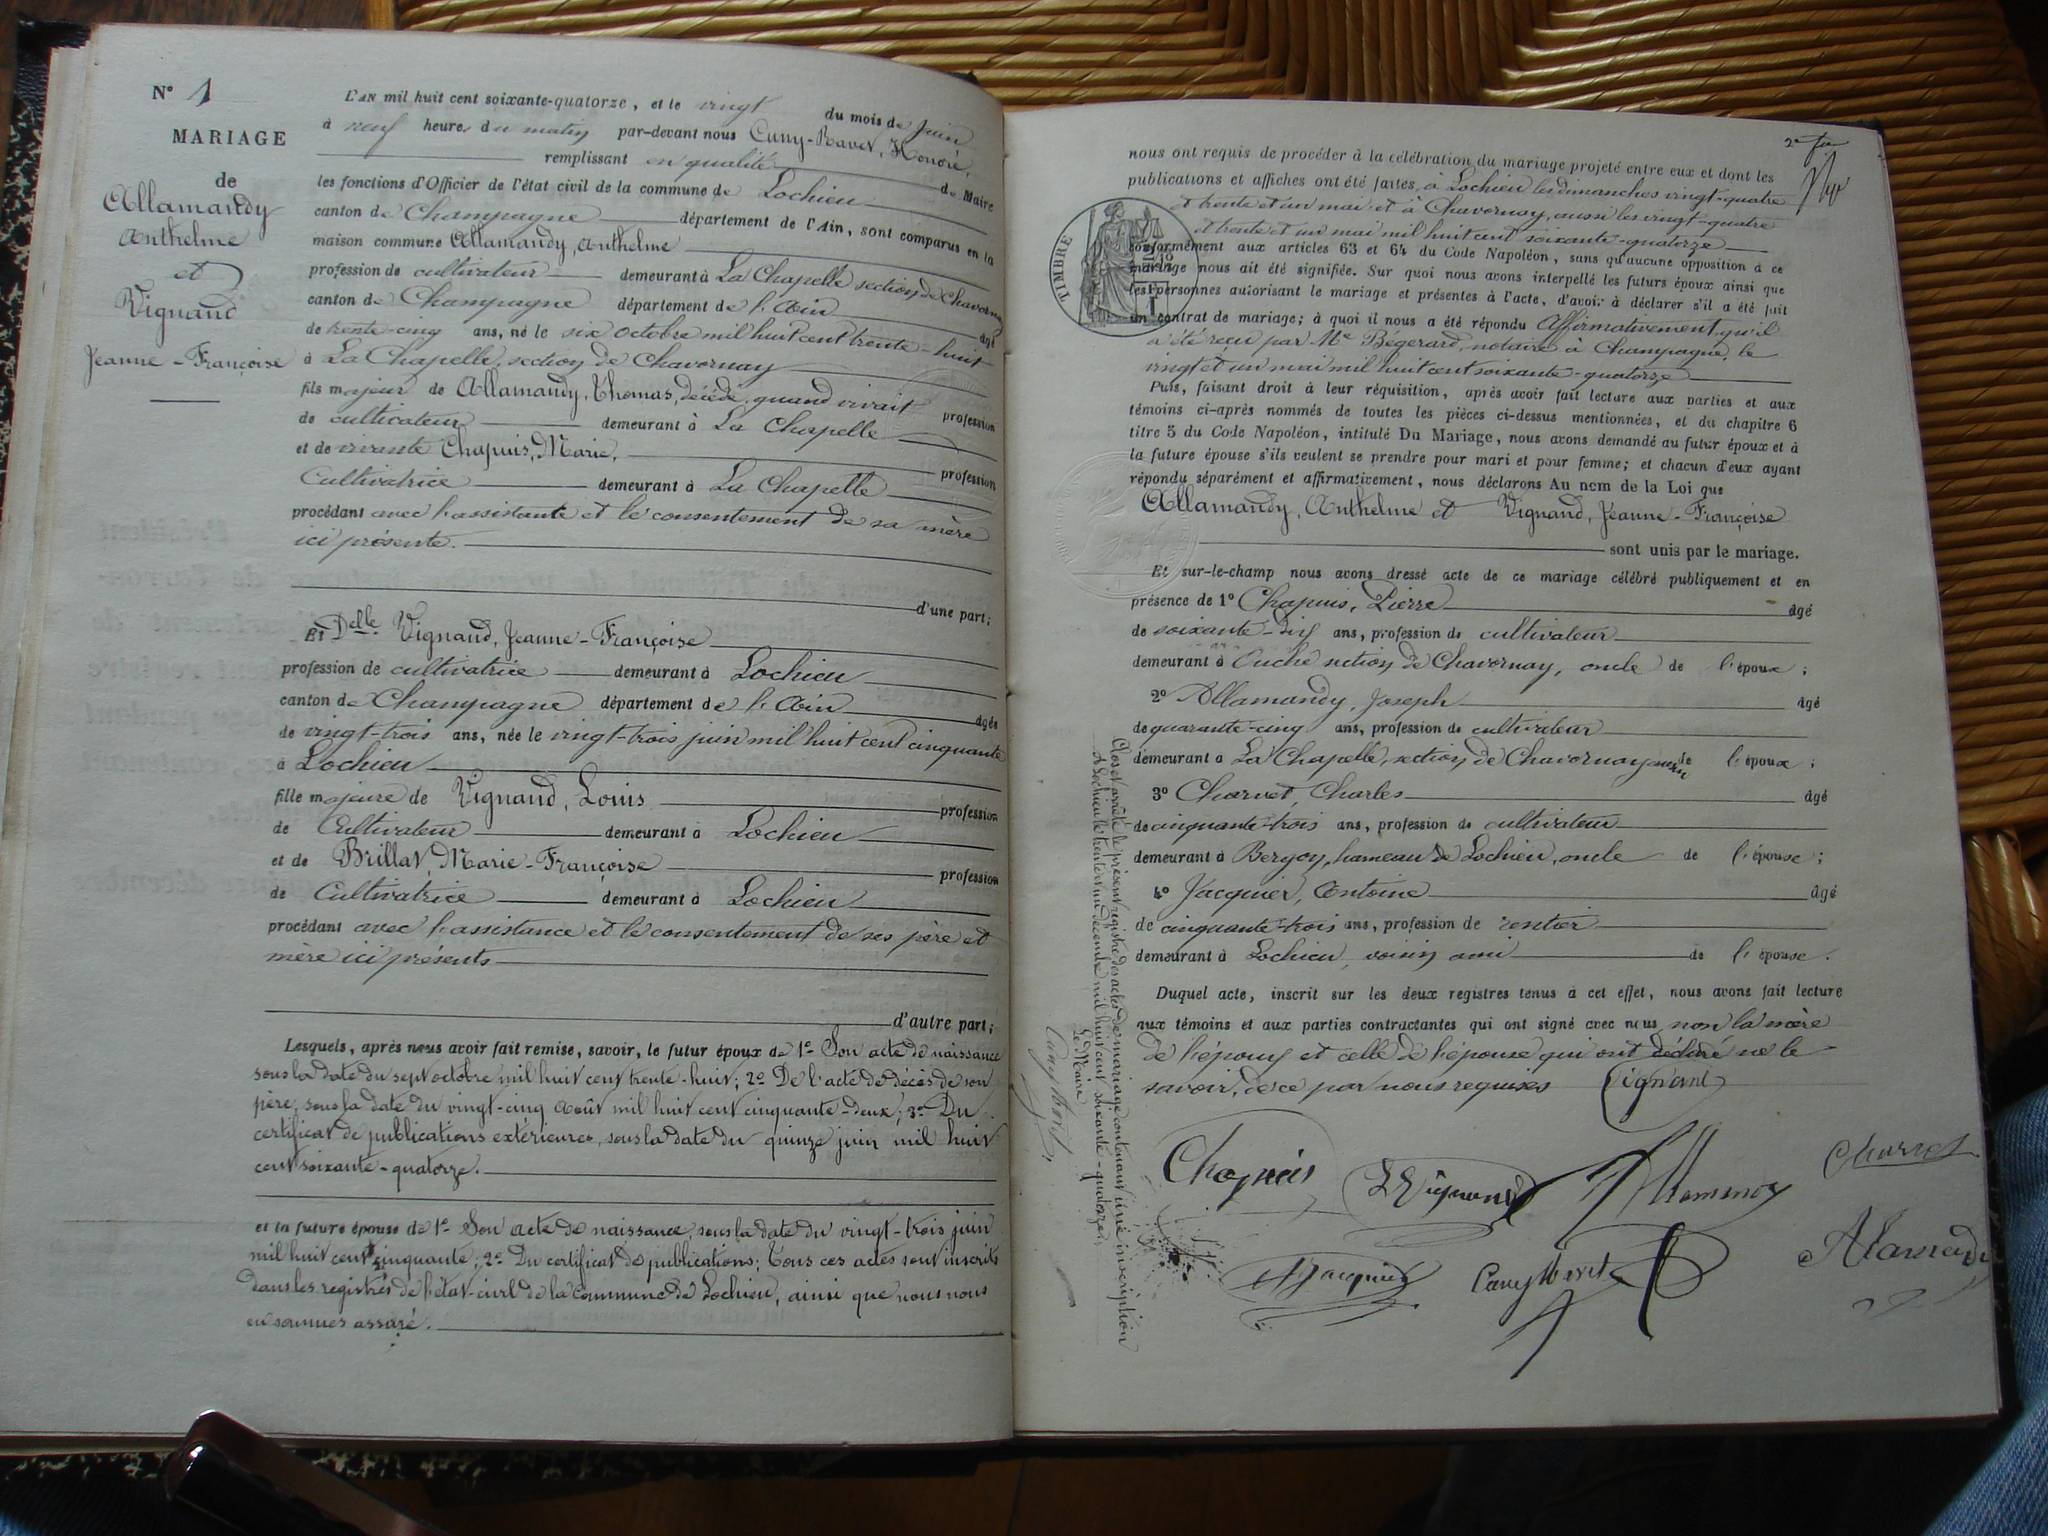 N° 1
MARIAGE
de
Allamandy
Anthelme
et
Vignand
Jeanne-Françoise
L'AN mil huit cent soixante-quatorze, et le vingt du mois de juin
à neuf heures du matin par-devant nous Cuny-Ravet, Honoré,
remplissant en qualité de Maire
les fonctions d'Officier de l'état civil de la commune de Lochieu
canton de Champagne département de l'Ain, sont comparus en la
maison commune Allamandy, Anthelme
profession de cultivateur demeurant à La Chapelle section de Chavornay
canton de Champagne département de l'Ain âgé
de trente-cinq ans, né le six octobre mil huit cent trente-huit
à La Chapelle, section de Chavornay
fils majeur de Allamandy, Thomas, décédé, quand vivait profession
de cultivateur demeurant à La Chapelle
et de vivante Chapuis, Marie, profession
Cultivatrice demeurant à La Chapelle
procédant avec l'assistante et le consentement de sa mère
ici présente.
d'une part;
Et Delle Vignand, Jeanne-Françoise
profession de cultivatrice demeurant à Lochieu
canton de Champagne département de l'Ain âgée
de vingt-trois ans, née le vingt-trois juin mil huit cent cinquante
à Lochieu
fille majeure de Vignand, Louis profession
de Cultivateur demeurant à Lochieu
et de Brillat, Marie-Françoise profession
de Cultivatrice demeurant à Lochieu
procédant avec l'assistance et le consentement de ses père et
mère ici présents
d'autre part;
Lesquels, après nous avoir fait remise, savoir, le futur époux de 1° Son acte de naissance
sous la date du sept octobre mil huit cent trente-huit; 2° De l'acte de décès de son
père, sous la date du vingt-cinq Août mil huit cent cinquante-deux; 3° Du
certificat de publications extérieures, sous la date du quinze juin mil huit
cent soixante-quatorze.
et la future épouse de 1° Son acte de naissance, sous la date du vingt-trois juin
mil huit cent cinquante; 2° Du certificat de publications; Tous ces actes sont inscrits
dans les registres de l'état-civil de la commune de Lochieu, ainsi que nous nous
en sommes assuré.
nous ont requis de procéder à la célébration du mariage projeté entre eux et dont les
publications et affiches ont été faites, à Lochieu les dimanches vingt-quatre
et trente et un mai et à Chavornay, aussi les vingt-quatre
et trente et un mai mil huit cent soixante-quatorze
TIMBRE
conformément aux articles 63 et 64 du Code Napoléon, sans qu'aucune opposition à ce
mariage nous ait été signifiée. Sur quoi nous avons interpellé les futurs époux ainsi que
les personnes autorisant le mariage et présentes à l'acte, d'avoir à déclarer s'il a été fait
un contrat de mariage; à quoi il nous a été répondu Affirmativement, qu'il
a été reçu par Me Bégerard, notaire à Champagne, le
vingt et un mai mil huit cent soixante-quatorze
Puis, faisant droit à leur réquisition, après avoir fait lecture aux parties et aux
témoins ci-après nommés de toutes les pièces ci-dessus mentionnées, et du chapitre 6
titre 5 du Code Napoléon, intitulé Du Mariage, nous avons demandé au futur époux et à
la future épouse s'ils veulent se prendre pour mari et pour femme; et chacun d'eux ayant
répondu séparément et affirmativement, nous déclarons Au nom de la Loi que
Allamandy, Anthelme et Vignand, Jeanne-Françoise
sont unis par le mariage.
Et sur-le-champ nous avons dressé acte de ce mariage célébré publiquement et en
présence de 1° Chapuis, Pierre âgé
de soixante-dix ans, profession de cultivateur
demeurant à Ouche section de Chavornay, oncle de l'époux;
2° Allamandy, Joseph âgé
de quarante-cinq ans, profession de cultivateur
demeurant à La Chapelle, section de Chavornay de l'époux;
3° Charvet, Charles âgé
de cinquante-trois ans, profession de cultivateur
demeurant à Bergoy, hameau de Lochieu, oncle de l'épouse;
4° Jacquier, Antoine âgé
de cinquante-trois ans, profession de rentier
demeurant à Lochieu, voisin ami de l'épouse.
Duquel acte, inscrit sur les deux registres tenus à cet effet, nous avons fait lecture
aux témoins et aux parties contractantes qui ont signé avec nous, non la mère
de l'époux et celle de l'épouse qui ont déclaré ne le
savoir, de ce par nous requises Vignand
Chapuis
L Vignand
Allamandy
Charvet
A Jacquier
Cuny Ravet
Alamandy
Clos et arrêté le présent registre des actes de mariage contenant une inscription
A Lochieu le trente et un décembre mil huit cent soixante-quatorze.
Le Maire
Cuny Ravet